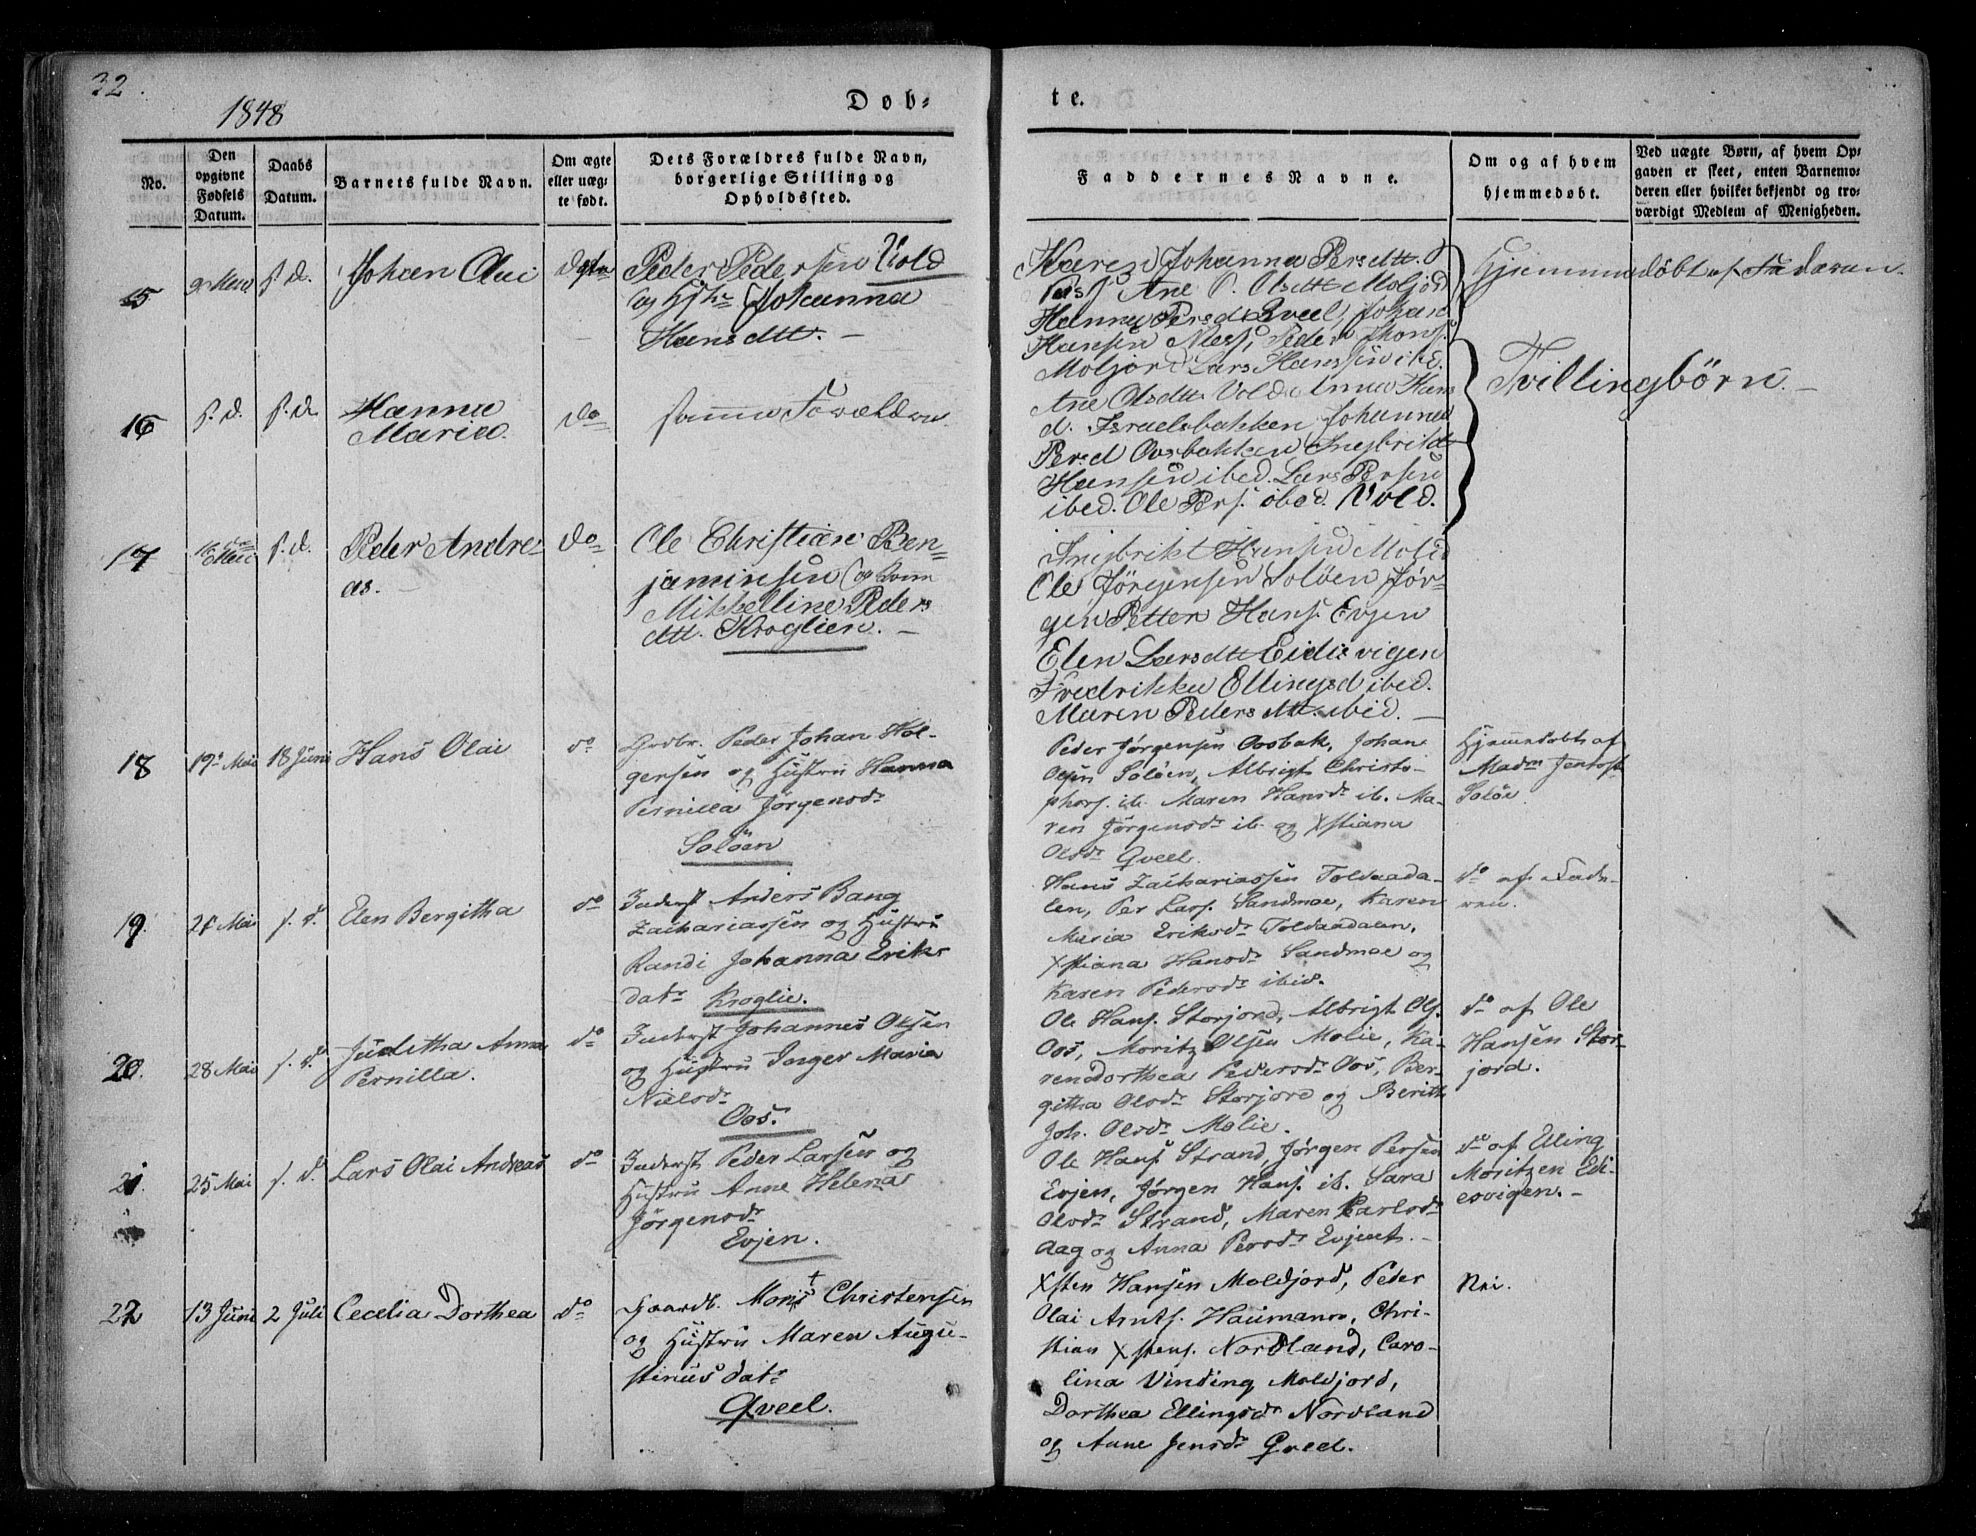 32.
1848
Døb-
te.
No.
Den opgivne Fødsels Datum.
Daabs Datum.
Barnets fulde Navn.
Om ægte eller uægte født.
Dets Forældres fulde Navn, borgerlige Stilling og Opholdssted.
Faddernes Navne.
Om og af hvem hjemmedøbt.
Ved uægte Børn, af hvem Opgaven er skeet, enten Barnemoderen eller hvilket bekjendt og troværdigt Medlem af Menigheden.
15
s. d.
Johan Olai
Peder Pedersen Vold
og Johanna
Hansdtt. —
Karen Johanna Persdtt.
Ane P. Olsdtt Moljord
Hanna Persd Qveel, Johan
Hansen Næss, Peder
Moljord Lars Hanssen ibd.
Hjemmedøbt af Faderen.
16
s. d.
s. d.
Hanna
Maria.
do
samme Forældre.
Ane Olsdtt Vold Anna Hans
d. Israelsbakken, Johanna
Persd Oosbakken Ingbrikt
Hansen ibed. Lars Persen
ibed. Ole Pers. ibed. Vold.
Tvillingbörn. —
17
s. d.
Peder Andre-
as.
do
Ole Christian Ben-
jaminsen og
Mikkelline Peders
dtt. Kroglien. —
Ingbrikt Hansen
Ole Jörgensen Solöen Jör-
gen Petter Hans. Evjen
Elen Larsdtt Eidisvigen
Fredrikka Ellingsd ibed.
Maren Pedersdtt. ibid. —
18
19 Mai
18 Juni
Hans Olai
do
Peder Johan Hol-
gersen og Hustru Hanna
Pernilla Jørgensdr
Soløen
Peder Jørgensen Oosbak, Johan
Olsen Soløen, Albrigt Christo-
phers. ib. Maren Hansdr ib. Ma-
ren Jørgensdr ib. og Xstiana
Olsdr Qveel.
Hjemmedøbt af
Madm
Soløe
19.
21 Mai
s. d.
Elen Bergitha
do
Inderst Anders Bang
Zachariassen og Hustru
Randi Johanna Eriks
datr Kroglie.
Hans Zachariassen Toldaada-
len, Per Lars. Sandmoe, Karen
Maria Eriksdr Toldaadalen,
Xstiana Hansdr Sandmoe og
Karen Pedersdr ibid.
do af Fade-
ren.
20.
28 Mai
s. d.
Juditha Anna
Pernilla.
do
Inderst Johannes Olsen
og Hustru Inger Maria
Nielsdr
Oos.
Ole Hans. Storjord, Albrigt Ols.
Oos, Moritz Olsen Molie, Ka-
ren Dorthea Pedersdr Oos, Ber-
githa Olsdr Storjord og Berith
Joh. Olsdr Molie.
do af Ole
Hansen Stor-
jord.
21.
25 Mai
s. d.
Lars Olai Andreas
do
Inderst Peder Larsen og
Hustru Anne Helena
Jørgensdr
Evjen.
Ole Hans. Strand, Jørgen Persen
Evjen, Jørgen Hans. ib. Sara
Olsdr Strand, Maren Carlsdr
Aag og Anna Persdr Evjen. —
do af Elling
Moritzen Edi-
esvigen. —
22
13 Juni
2 Juli
Cecelia Dorthea
do
Gaardb. Christensen
og Hustru Maren Augu-
stinusdatr
Qveel.
Xsten Hansen Moldjord, Peder
Olai Arnts. Haumann, Chri-
stian Xstens. Nordland, Caro-
lina Vinding Moldjord,
Dorthea Ellingsdr Nordland
og Anne Jensdr Qveel.
Nei.